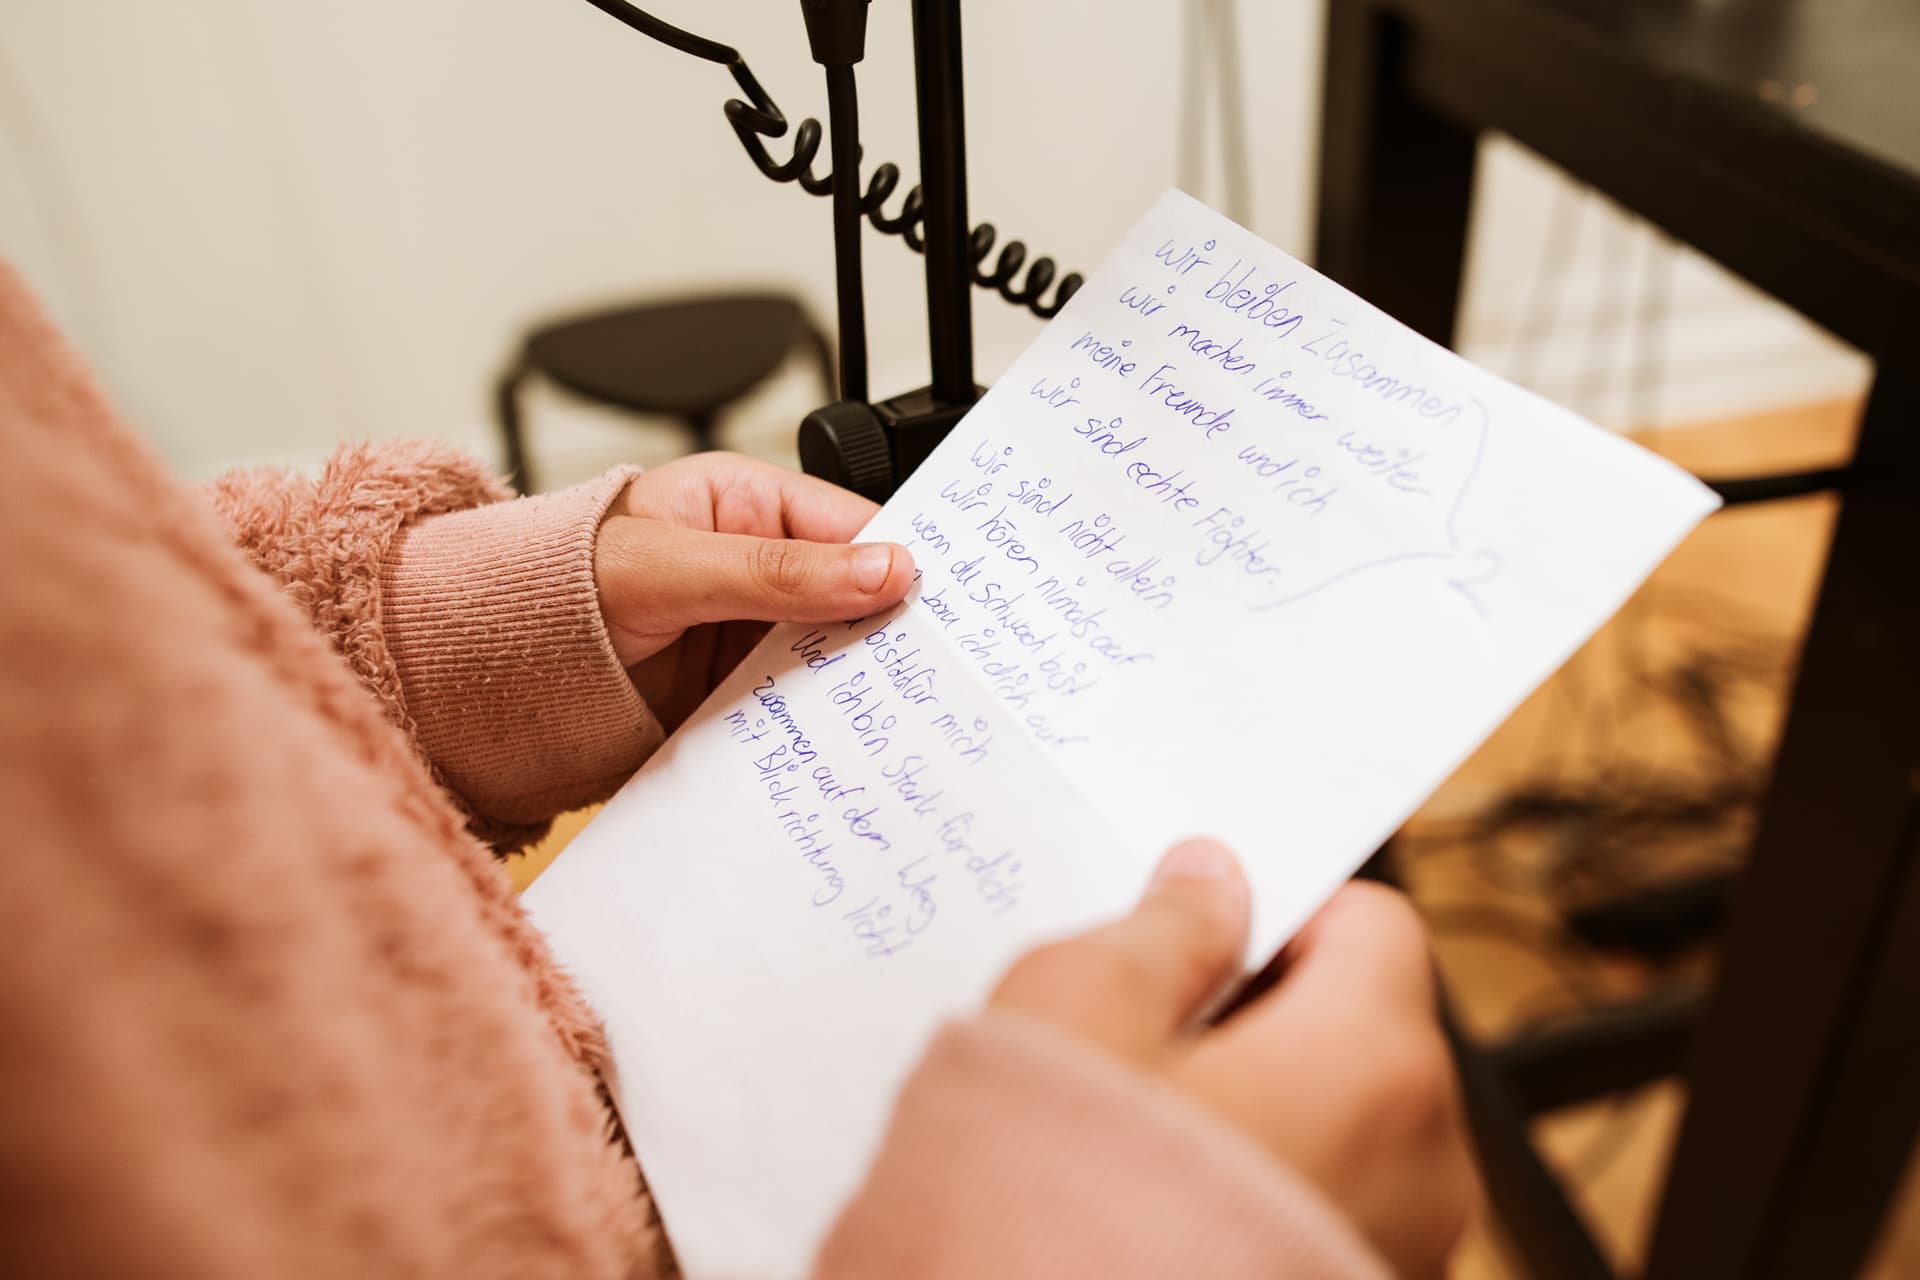 wir bleiben Zusammen
wir machen immer weiter
meine Freunde und ich
wir sind echte Fighter.
2
Wir sind nicht allein
wir hören nimals auf
wenn du schwach bist
bau ich dich auf
bist da für mich
und ich bin Stark für dich
zusammen auf dem Weg
mit Blick richtung licht.